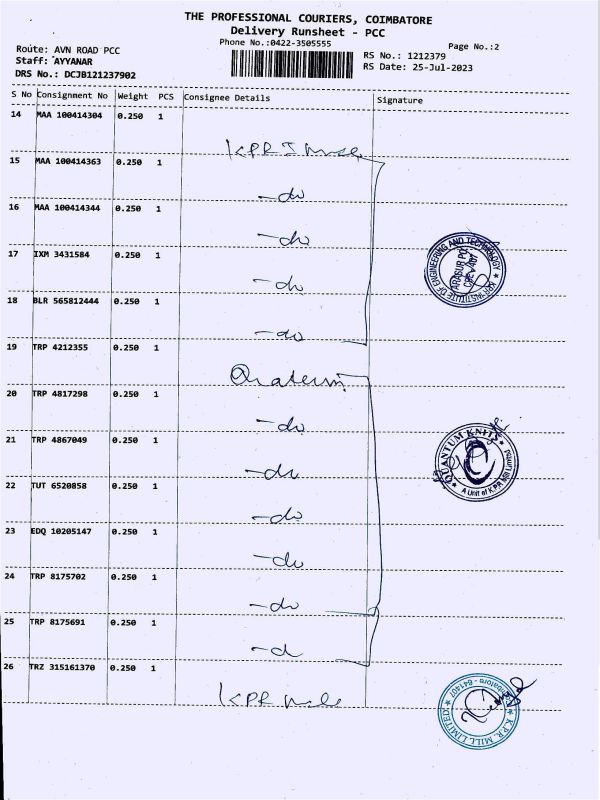 THE PROFESSIONAL COURIERS, COIMBATORE
Delivery Runsheet - PCC
Phone No.:0422-3505555
Page No.:2
Route: AVN ROAD PCC
Staff: AYYANAR
DRS No.: DCJB121237902
RS No.: 1212379
RS Date: 25-Jul-2023
S No Consignment No Weight PCS Consignee Details Signature
14 MAA 100414304 0.250 1
KPR I
15 MAA 100414363 0.250 1
-do
16 MAA 100414344 0.250 1
-do
17 IXM 3431584 0.250 1
-do
18 BLR 565812444 0.250 1
-do
KPR INSTITUTE OF ENGINEERING AND TECHNOLOGY
ARASUR PO
19 TRP 4212355 0.250 1
20 TRP 4817298 0.250 1
-do
21 TRP 4867049 0.250 1
-do
22 TUT 6520858 0.250 1
-do
23 EDQ 10205147 0.250 1
-do
24 TRP 8175702 0.250 1
-do
25 TRP 8175691 0.250 1
-d
QUANTUM KNITS
A Unit of K.P.R Mill Limited
26 TRZ 315161370 0.250 1
KPR
K.P.R. MILL LIMITED
Coimbatore - 641407